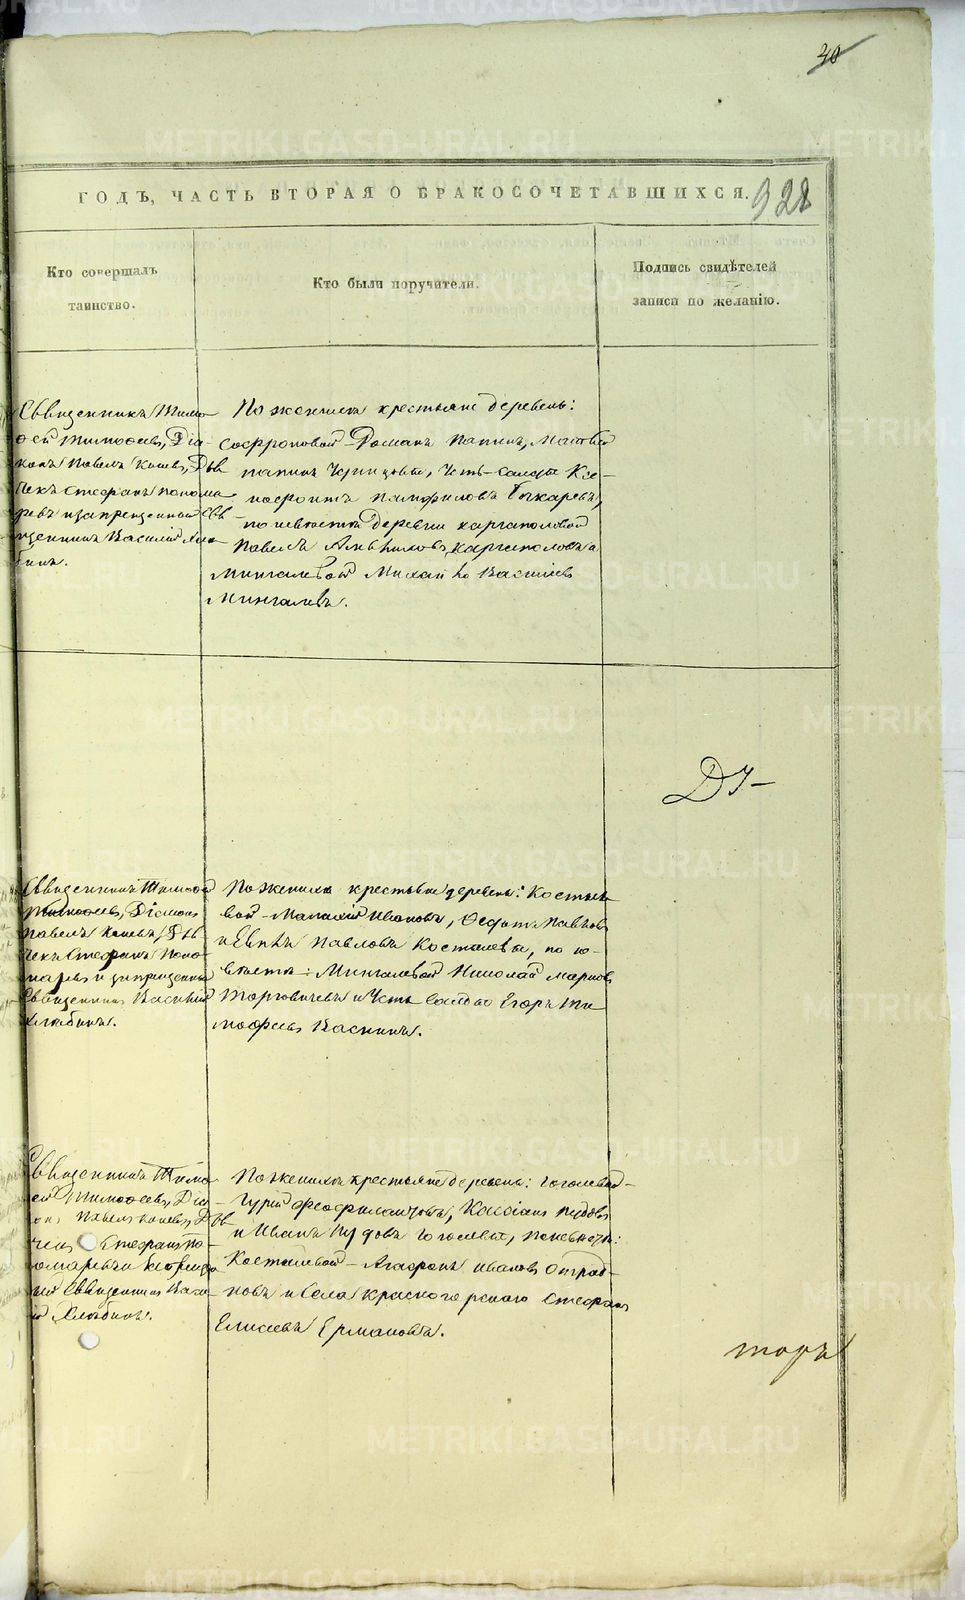 40
ГОДЪ, ЧАСТЬ ВТОРАЯ О БРАКОСОЧЕТАВШИХСЯ.
928
Кто совершалъ
таинство.
Кто были поручители.
Подпись свидѣтелей
записи по желанію.
Священникъ Тимо-
ѳей Тимоѳеевъ, Діа-
конъ Павелъ Конев, Дья-
чекъ Стефанъ Понома-
ревъ и запрещенный Свя-
щенникъ Василій
По женихѣ крестьяне деревень:
Софроновой Романъ Папинъ, Матвей
Папинъ Усть-Салды
Памфиловъ Бочкаревъ,
по невѣстѣ деревни Каргаполовой
Павелъ Каргаполовъ и
Мингалевой Михайло Василіев
Мингалевъ.
Ду-
Священникъ Тимоѳей
Тимоѳеевъ, Діаконъ
Павелъ Коневъ, Дья-
чекъ Стефанъ Поно-
маревъ и запрещенный
Священникъ Василій
Хлябинъ.
По женихѣ крестьяне деревень: Костыле-
вой Иванов, Федотъ Павлов
и Павлов Костылевы, по не-
вѣстѣ: Мингалевой Николай Марков
и Усть Салды Егоръ Ти-
мофеев Васнинъ.
Священникъ Тимо-
ѳей Тимоѳеевъ, Діа-
конъ Павелъ Коневъ, Дья-
чекъ Стефанъ По-
номаревъ и запрещен-
ный Священникъ Васи-
лій Хлябинъ.
По женихѣ крестьяне деревень: Гоголевой-
Гурій Феофилактовъ, Кассіанъ Пудовъ
и Иванъ Пудовъ Гоголевы, по невѣстѣ:
Костылевой - Агафонъ Иванов Отрад-
новъ и села Красногорскаго Стефанъ
Елисеевъ Ермаковъ.
торъ
METRIKI.GASO-URAL.RU